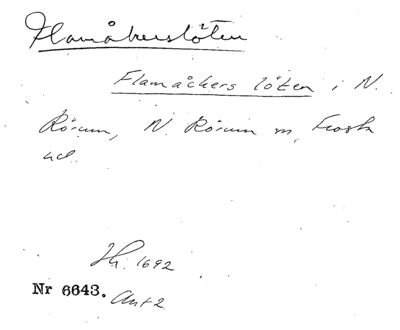 Flamåkerslöten
Flamåckers löten i N.
Rörum, N. Rörum sn, Frosta
hd.
Jh. 1692
Nr 6643. Ant 2